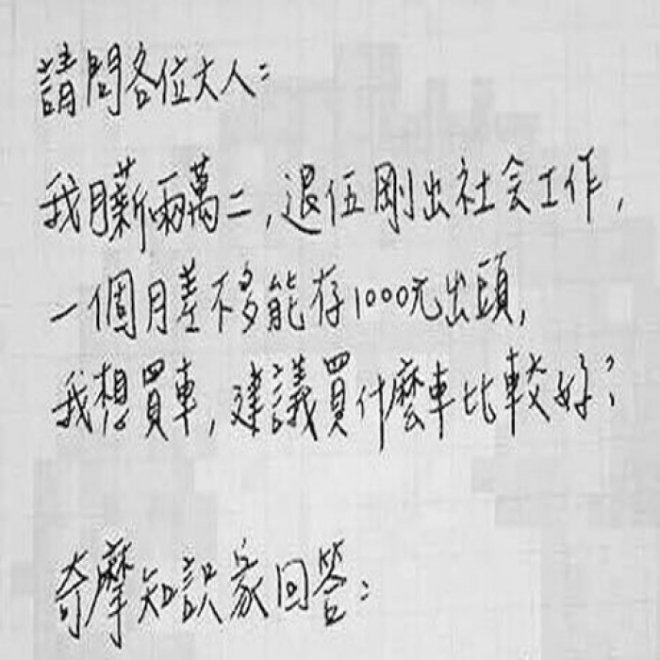 請問各位大人：
我月薪兩萬二，退伍剛出社会工作，
一個月差不多能存1000元出頭，
我想買車，建議買什麼車比較好？
奇摩知識家回答：